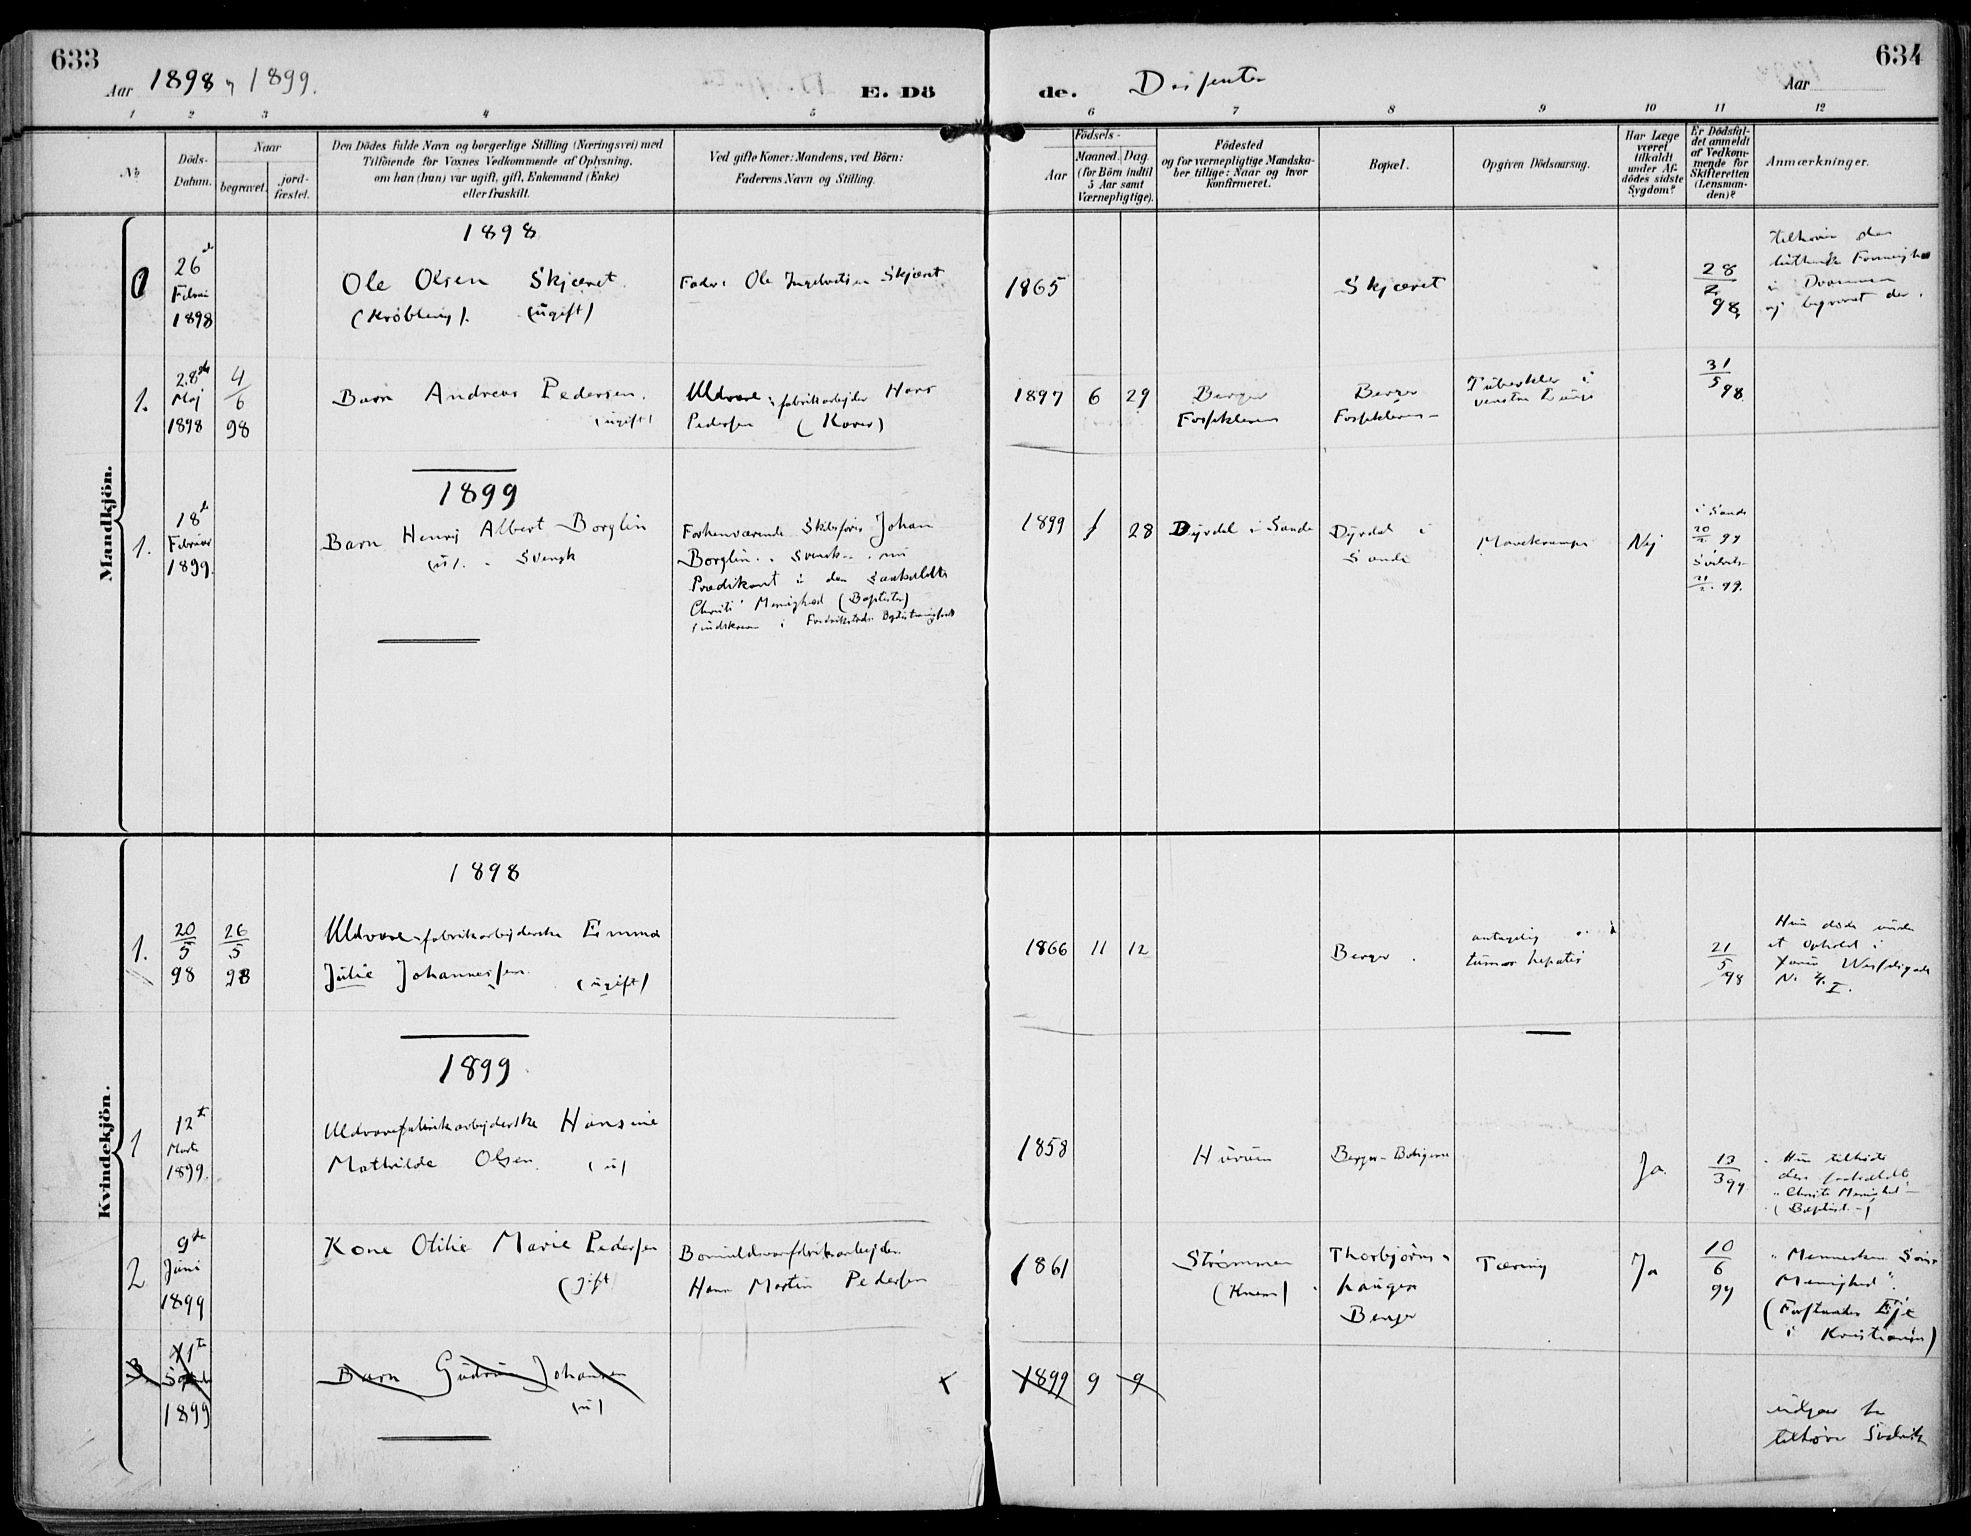 633
Aar 1898 og 1899.
E. Dö
de.
Dissenter
Aar
634
1 2 3 4 5 6 7 8 9 10 11 12
No
Döds-
Datum.
Naar
begravet.
jord-
fæstet.
Den Dödes fulde Navn og borgerlige Stilling (Næringsvei) med
Tilföiende for Voxnes Vedkommende af Oplysning,
om han (hun) var ugift, gift, Enkemand (Enke)
eller fraskilt.
Ved gifte Koner: Mandens, ved Börn:
Faderens Navn og Stilling.
Födsels-
Aar
Maaned. Dag
(for Börn indtil
5 Aar samt
Værnepligtige).
Födested
og for værnepligtige Mandska-
ber tillige: Naar og hvor
konfirmeret.
Bopæl.
Opgiven Dödsaarsag.
Har Læge
været
tilkaldt
under Af-
dödes sidste
Sygdom?
Er Dödsfal-
det anmeldt
af Vedkom-
mende for
Skifteretten
(Lensman-
den)?
Anmærkninger.
Mandkjön.
1898
0
26de
Februar
1898
Ole Olsen Skjæret
(Krøbling). (ugift)
Fader: Ole Ingebretsen Skjæret
1865
Skjæret
28
2
98.
tilhører den
lutherske Frimenighed
i Drammen
og begravet der.
1.
28de
Maj
1898
4
6
98
Barn Andreas Pedersen.
(ugift)
Uldvarefabrikarbejder Hans
Pedersen
1897 6 29
Berger
Fossekleven
Berger
Fossekleven
Tuberkler i
venstre Lunge
31
5
98
1899
1.
18de
Februar
1899.
Barn Henrij Albert Borglin
(u). Svensk
Forhenværende Skibsfører Johan
Borglin. Svensk. nu
Prædikant i den saakaldte
Christi Menighed (Baptister)
1899 1 28
Dyrdal i Sande
Dyrdal i
Sande
Mavekrampe
Nej
i Sande
20
2 99
21
2. 99.
Kvindekjön.
1898
1.
20
5
98
26
5
98
Uldvarefabrikarbejderske Emma
Julie Johannessen
(ugift)
1866 11 12
Berger
antagelig
tumor hepatis
21
5
98
Hun døde under
et Ophold i
1899
1
12te
Marts
1899.
Uldvarefabrikarbejderske Hansine
Mathilde Olsen. (u)
1858
Hurum
Berger-Boligerne
Ja
13
3 99
Hun tilhørte
den saakaldte
"Christi Menighed"
(Baptist)
2
9de
Juni
1899
Kone Otilie Marie Pedersen
(gift)
Bomuldsvarefabrikarbejder
Hans Martin Pedersen
1861
Strømmen
Thorbjørns-
haugen
Berger
Tæring
Ja
10
6
99
"Menneskens Søns
Menighed".
(Forstander Eje
i Kristiania)
3
1899
Barn Gudrun Johansen
(u)
1899 9 9
udgaar da
tilhører